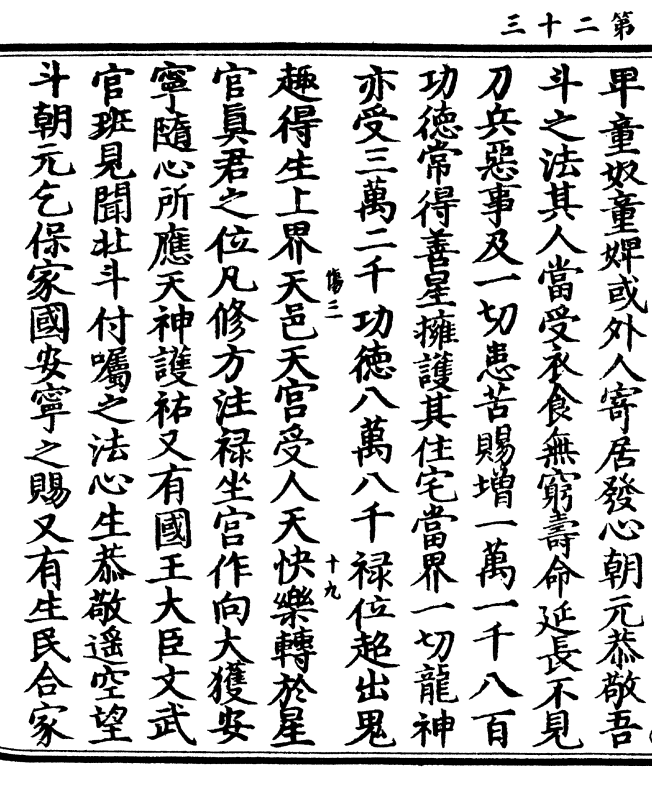 第二十三
毕童奴童婢或外人寄居發心朝元恭敬吾
斗之法其人當受衣食無窮壽命延長不見
刀兵惡事及一切患苦賜增一萬一千八百
功德常得善星擁護其住宅當界一切龍神
亦受三萬二千功德八萬八千禄位超出鬼
傷三
十九
趣得生上界天邑天宮受人天快樂轉於星
官眞君之位凡修方注禄坐宮作向大獲安
寧隨心所應天神護祐又有國王大臣文武
官班見聞北斗付囑之法心生恭敬遥空望
斗朝元乞保家國安寧之賜又有生民合家